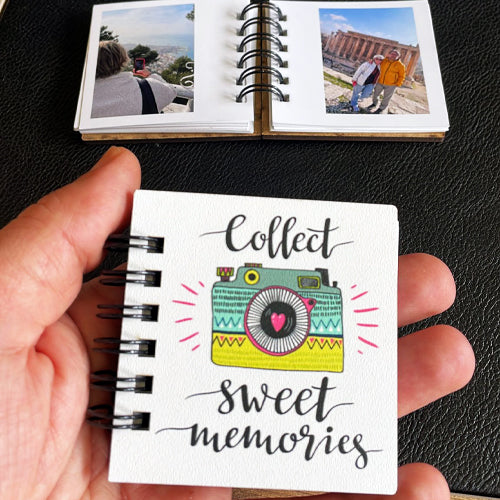 Collect
sweet
memories